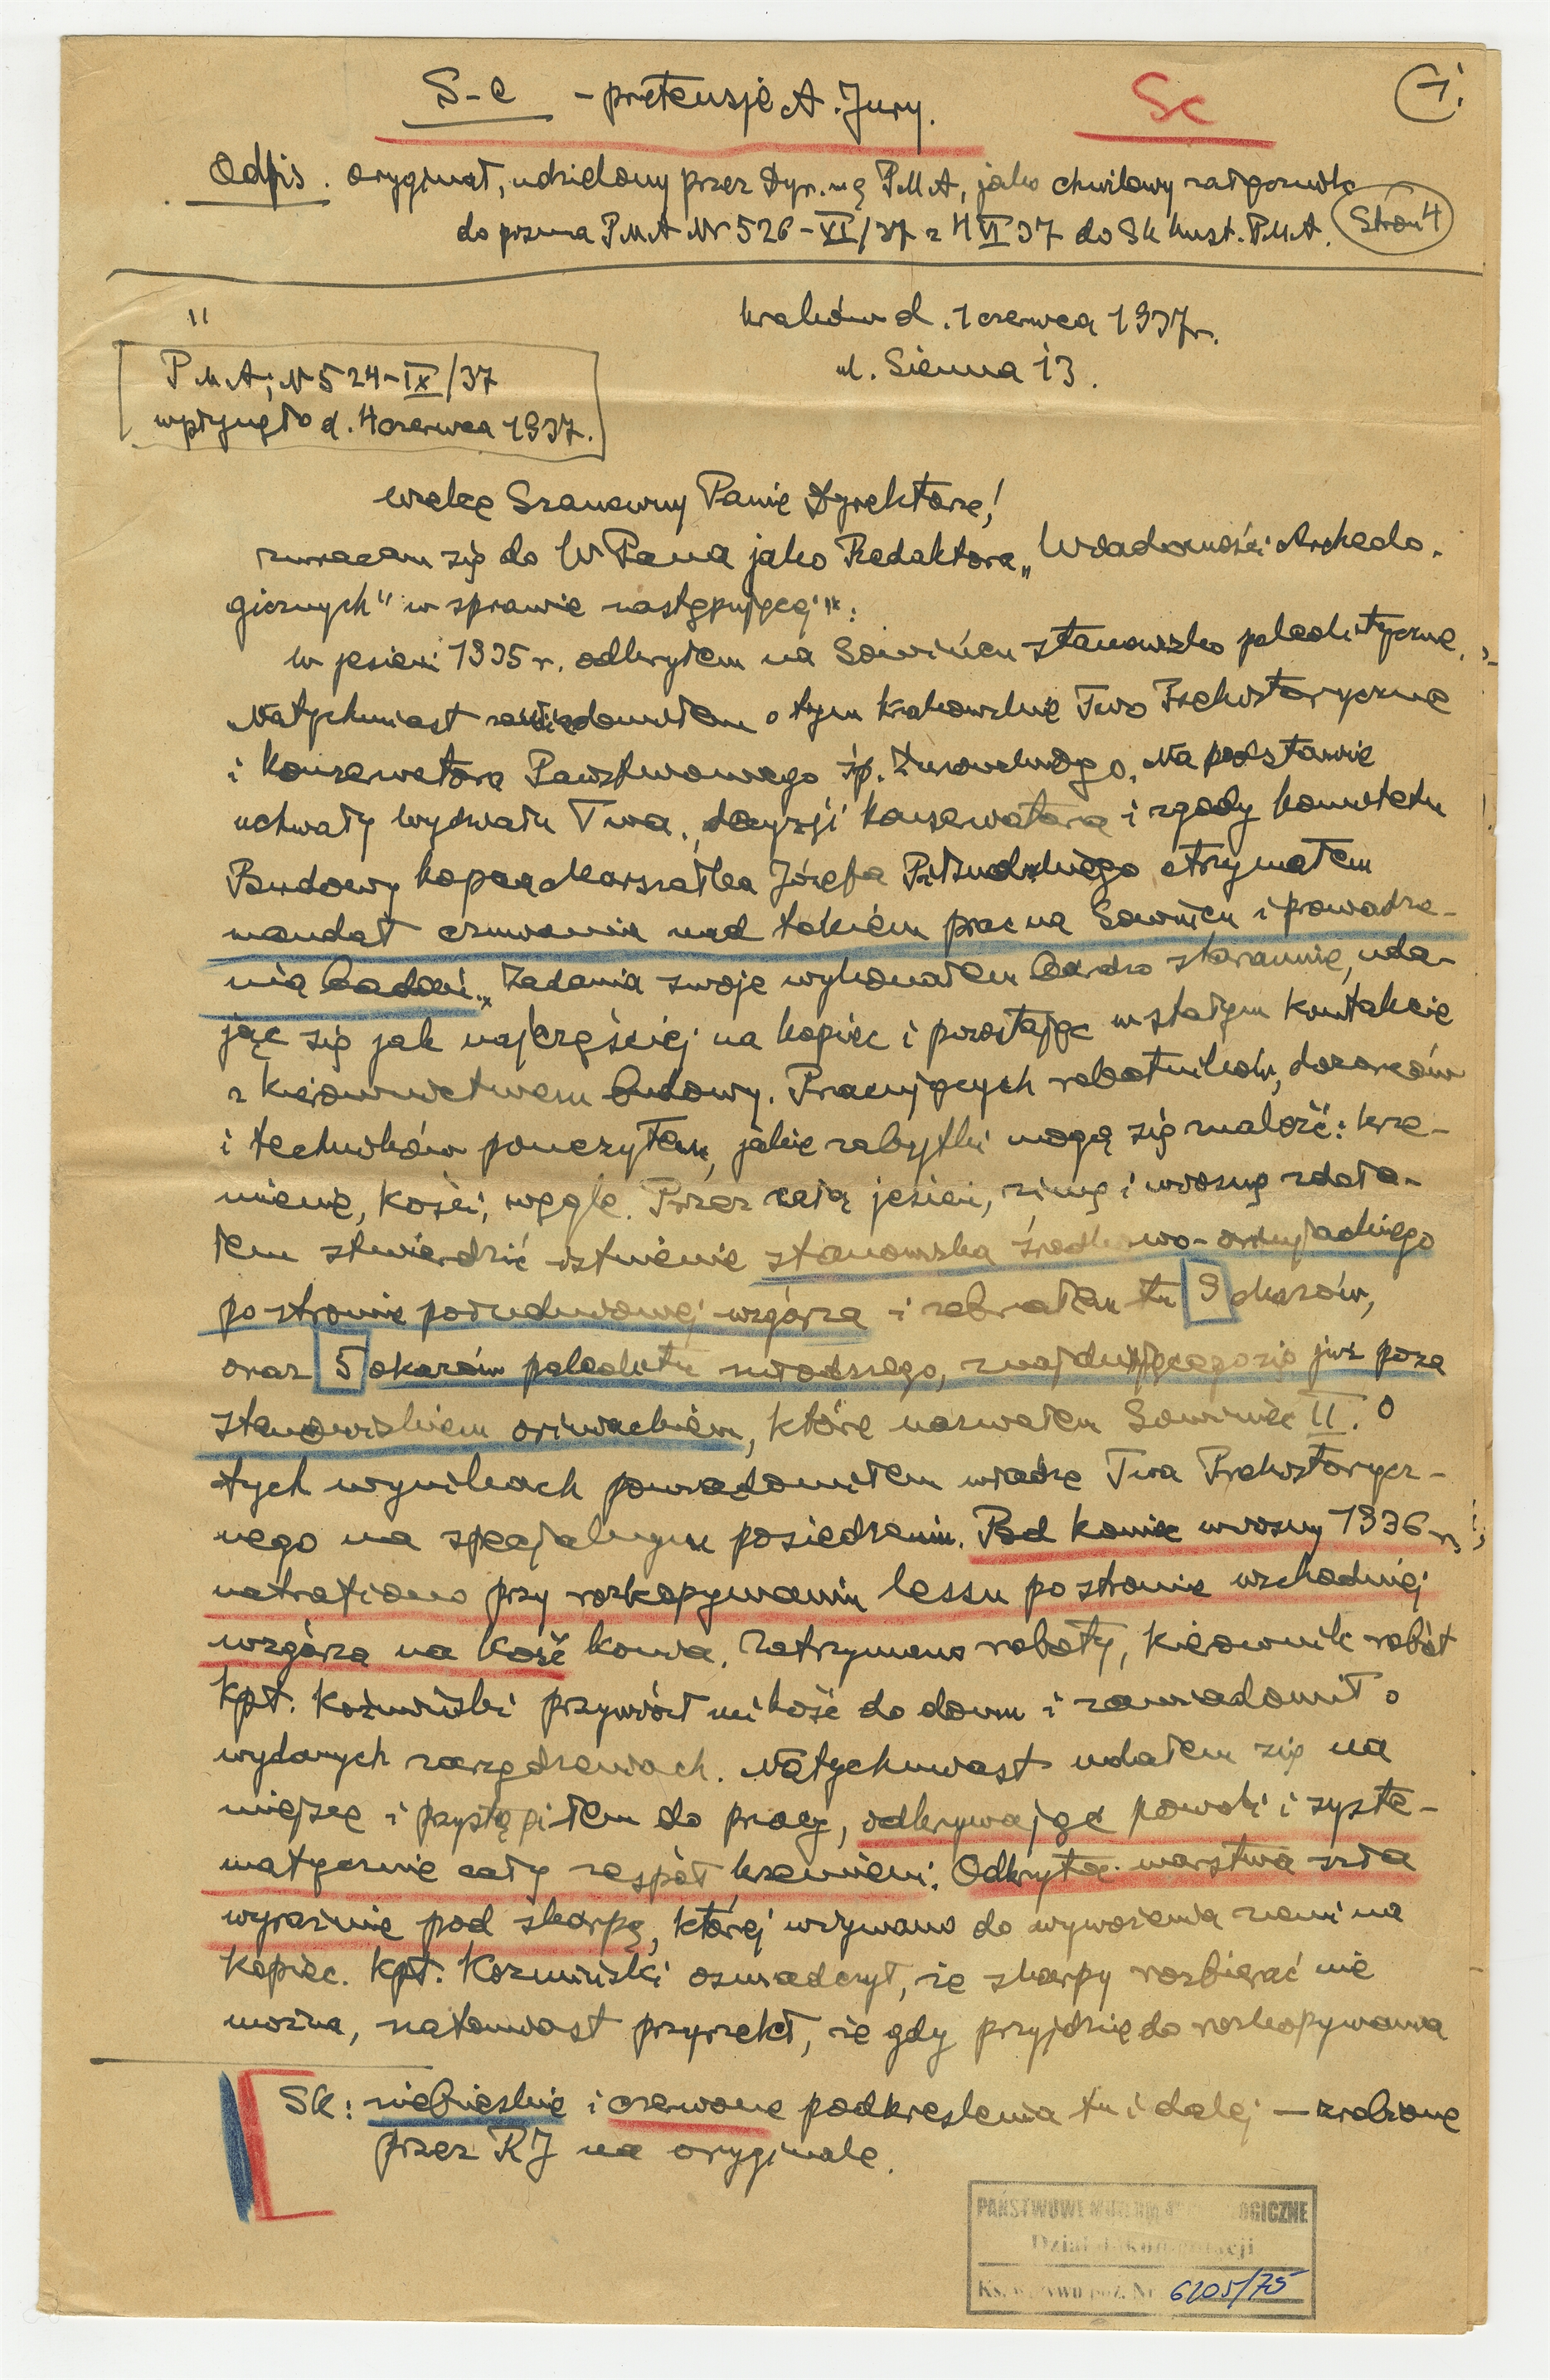 S-c - pretensje A. Jury.
Sc
1.
Odpis. oryginał, udzielony przez Dyr. PMA, jako chwilowy załącznik
do pisma PMA Nr 526-VI/37 z 4 VI 37 do Sk kust. PMA.
Stron 4
"
Kraków d. 1 czerwca 1937 r.
ul. Sienna 13.
PMA; N 524-IX/37
wpłynęło d. 4 czerwca 1937.
Wielce Szanowny Panie Dyrektorze!
zwracam się do WPana jako Redaktora „Wiadomości Archeolo-
gicznych" w sprawie następującej:
W jesieni 1935 r. odkryłem na Sowińcu stanowisko paleolityczne.
Natychmiast zawiadomiłem o tym Krakowskie Two Prehistoryczne
i Konserwatora Państwowego śp. Żurowskiego. Na podstawie
uchwały Wydziału Twa., decyzji konserwatora i zgody komitetu
Budowy Kopca Marszałka Józefa Piłsudskiego otrzymałem
mandat czuwania nad tokiem prac na Sowińcu i prowadze-
nia badań. Zadania swoje wykonałem bardzo starannie, uda-
jąc się jak najczęściej na kopiec i pozostając w stałym kontakcie
z kierownictwem budowy. Pracujących robotników, dozorców
i techników pouczyłem, jakie zabytki mogą się znaleźć: krze-
mienie, kości, węgle. Przez całą jesień, zimę i wiosnę zdoła-
łem stwierdzić istnienie stanowiska środkowo-oryniackiego
po stronie południowej wzgórza i zebrałem tu 9 okazów,
oraz 5 okazów paleolitu młodszego, znajdującego się już poza
stanowiskiem oriniackiem, które nazwałem Sowiniec II. O
tych wynikach powiadomiłem władze Twa Prehistorycz-
nego na specjalnym posiedzeniu. Pod koniec wiosny 1936 r.
natrafiono przy rozkopywaniu lessu po stronie wschodniej
wzgórza na kość konia. Zatrzymano roboty, kierownik robót
kpt. Koźmiński przywiózł mi kość do domu i zawiadomił o
wydanych zarządzeniach. Natychmiast udałem się na
miejsce i przystąpiłem do pracy, odkrywając powoli i syste-
matycznie cały zespół krzemieni. Odkryta warstwa szła
wyraźnie pod skarpę, której używano do wywożenia ziemi na
kopiec. Kpt. Koźmiński oświadczył, że skarpy rozbierać nie
można, natomiast przyrzekł, że gdy przyjdzie do rozkopywania
Sk: niebieskie i czerwone podkreślenia tu i dalej — zrobione
przez RJ na oryginale.
PAŃSTWOWE MUZEUM ARCHEOLOGICZNE
Dział Dokumentacji
Ks. wpływu poz. Nr 6205/75